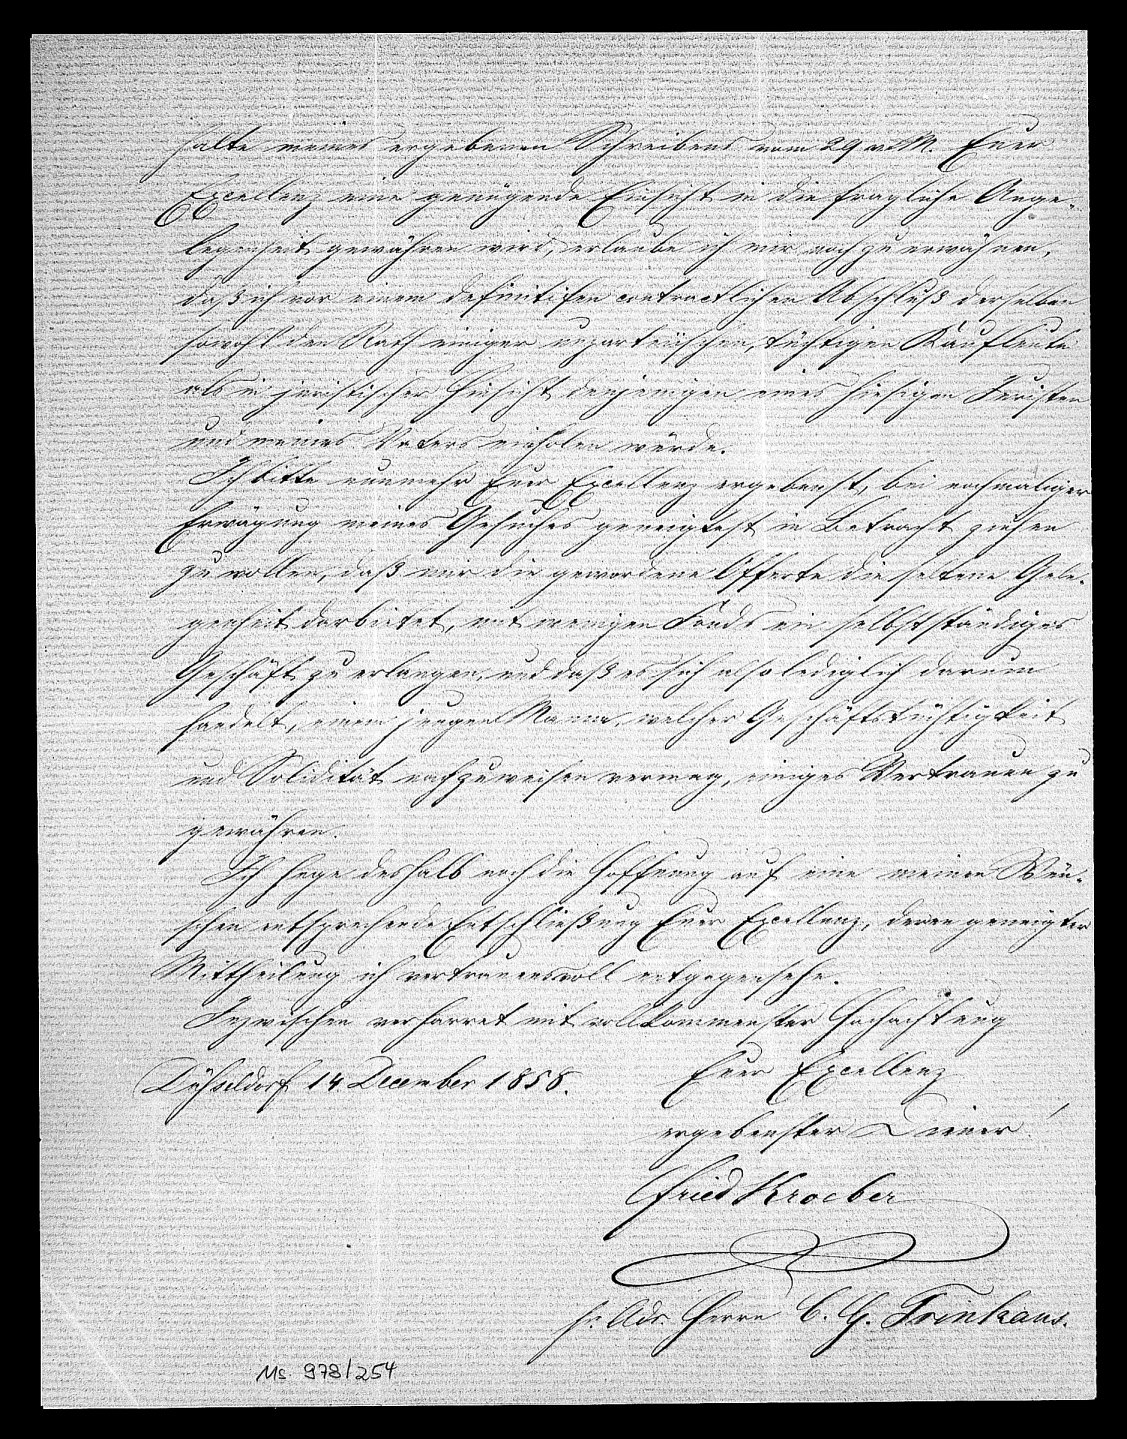 halte meines ergebenen Schreibens vom 29 v. M. Euer
Excellenz eine genügende Einsicht in die fragliche Ange-
legenheit gewähren wird, erlaube ich mir noch zu erwähnen,
daß ich vor einem definitifen contractlichen Abschluß derselben
sowohl den Rath einiger unparteiischen, tüchtigen Kaufleute
als in juristischer Hinsicht denjenigen eines hiesigen Juristen
und meines Vaters einholen würde.
Ich bitte nunmehr Euer Excellenz ergebenst, bei nochmaliger
Erwägung meines Gesuches geneigtest in Betracht ziehen
zu wollen, daß mir die gewordene Offerte die seltene Gele-
genheit darbietet, mit wenigen Fonds ein selbstständiges
Geschäft zu erlangen, und daß es sich also lediglich darum
handelt, einem jungen Manne, welcher Geschäftstüchtigkeit
und Solidität nachzuweisen vermag, einiges Vertrauen zu
gewähren.
Ich hege deshalb noch die Hoffnung auf eine meinen Wün-
schen entsprechende Entschließung Euer Excellenz, deren geneigter
Mittheilung ich vertrauensvoll entgegensehe.
Inzwischen verharret mit vollkommenster Hochachtung
Euer Excellenz
Düsseldorf 14 December 1858.
ergebenster Diener!
Fried Kroeber
pr. Adr. Herrn C. G. Trinkaus.
Ms 978/254